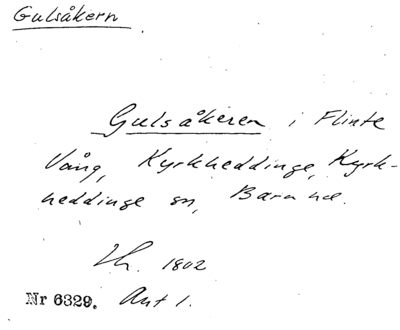 Gulsåkern
Gulsåkeren i Flinte
Vång, Kyrkheddinge, Kyrk-
heddinge sn, Bara hd.
1802
Nr 6329. Akt 1.